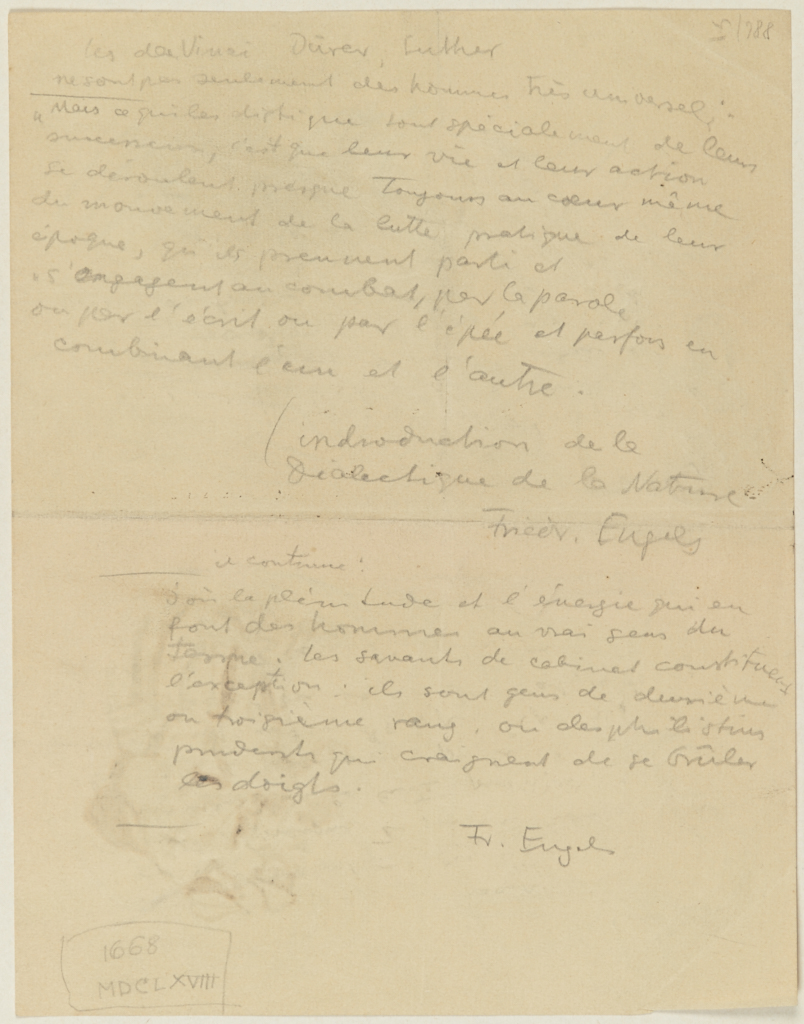 I/188
les da Vinci Dürer, Luther
ne sont pas seulement des hommes très universels;
"Mais ce qui les distingue tout spécialement de leurs
successeurs, c'est que leur vie et leur action
se déroulent presque toujours au cœur même
du mouvement de la lutte pratique de leur
époque, qu'ils prennent parti et
s'engagent au combat, par la parole
ou par l'écrit ou par l'épée et parfois en
combinant l'un et l'autre.
(indroduction de la
Dialectique de la Nature
Friedr. Engels
il continue:
d'où la plénitude et l'énergie qui en
font des hommes au vrai sens du
terme. Les savants de cabinet constituent
l'exception: ils sont gens de deuxième
ou troisième rang, ou des philistins
prudents qui craignent de se brûler
les doigts.
Fr. Engels
1668
MDCLXVIII